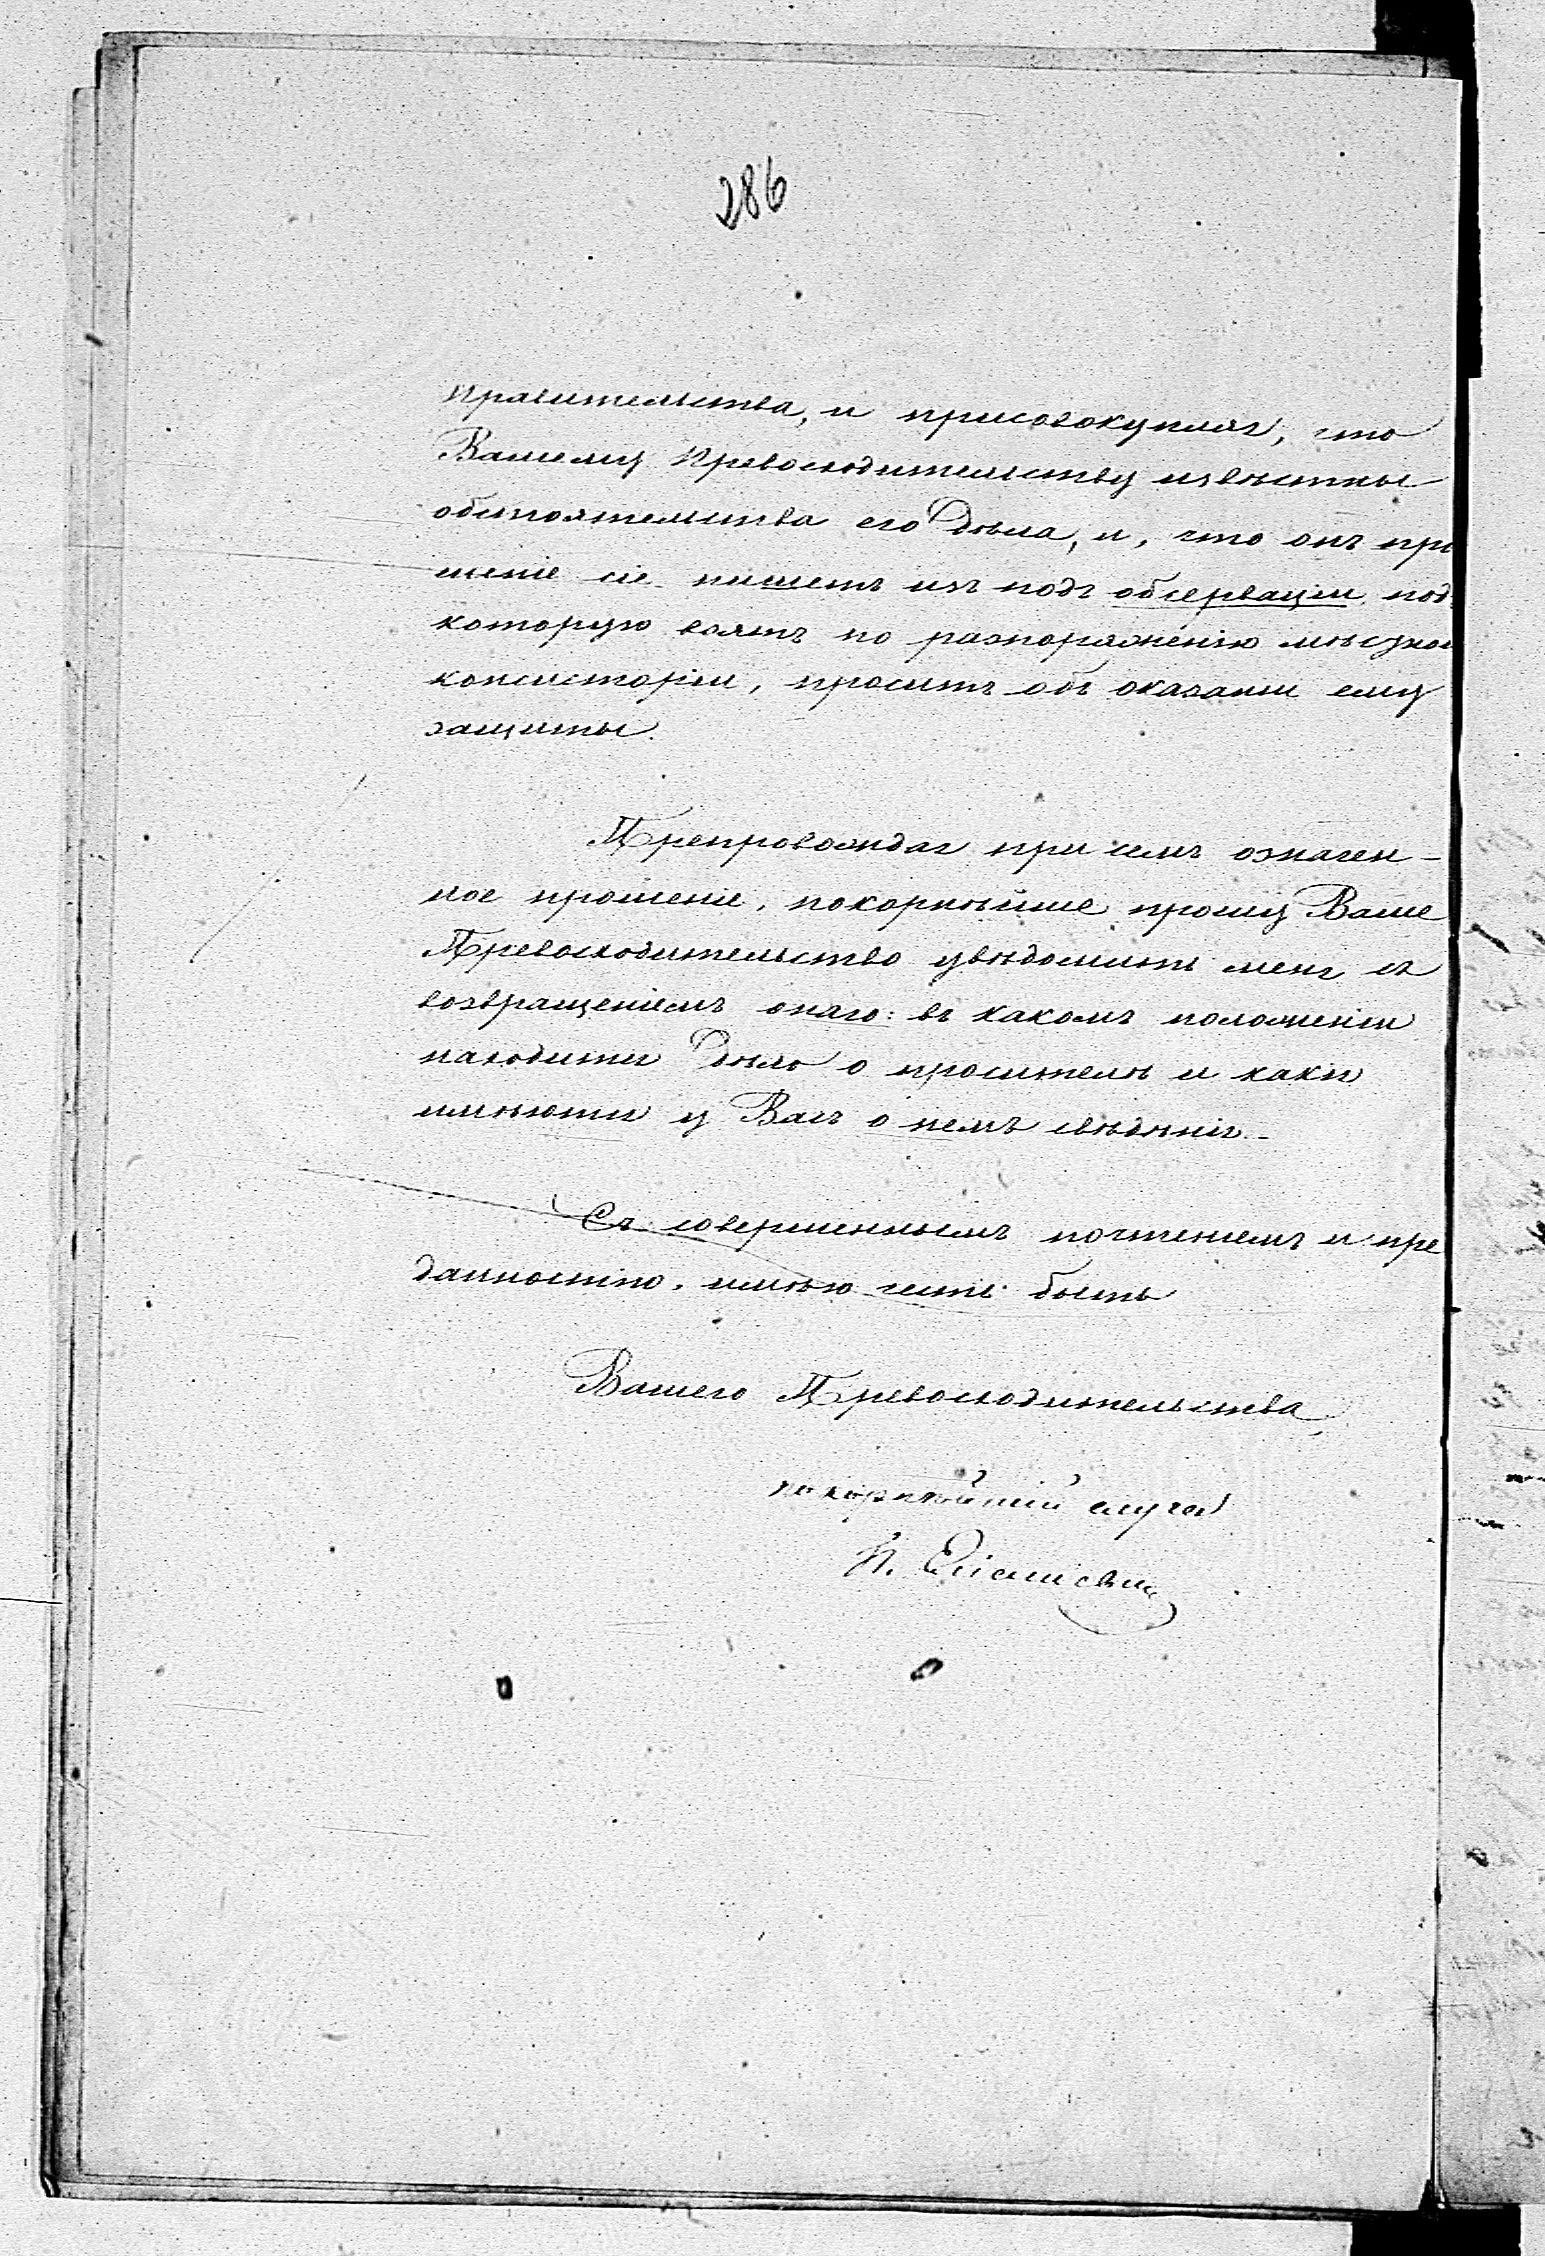 286
правительства, и присовокупляя, что
Вашему Превосходительству извѣстны
обстоятельства его дѣла, и, что онъ про
шеніе сіе пишетъ изъ подъ обсерваціи, под
которую взятъ по распоряженію мѣстной
консисторіи, проситъ объ оказаніи ему
защиты.
Препровождая при семъ означен-
ное прошеніе, покорнѣйше прошу Ваше
Превосходительство увѣдомить меня съ
возвращеніемъ онаго: въ какомъ положеніи
находится дѣло о просителѣ и какія
имѣются у Васъ о немъ свѣдѣнія.
Съ совершеннымъ почтеніемъ и пре
данностію, имѣю честь быть
Вашего Превосходительства,
покорнѣйшій слуга